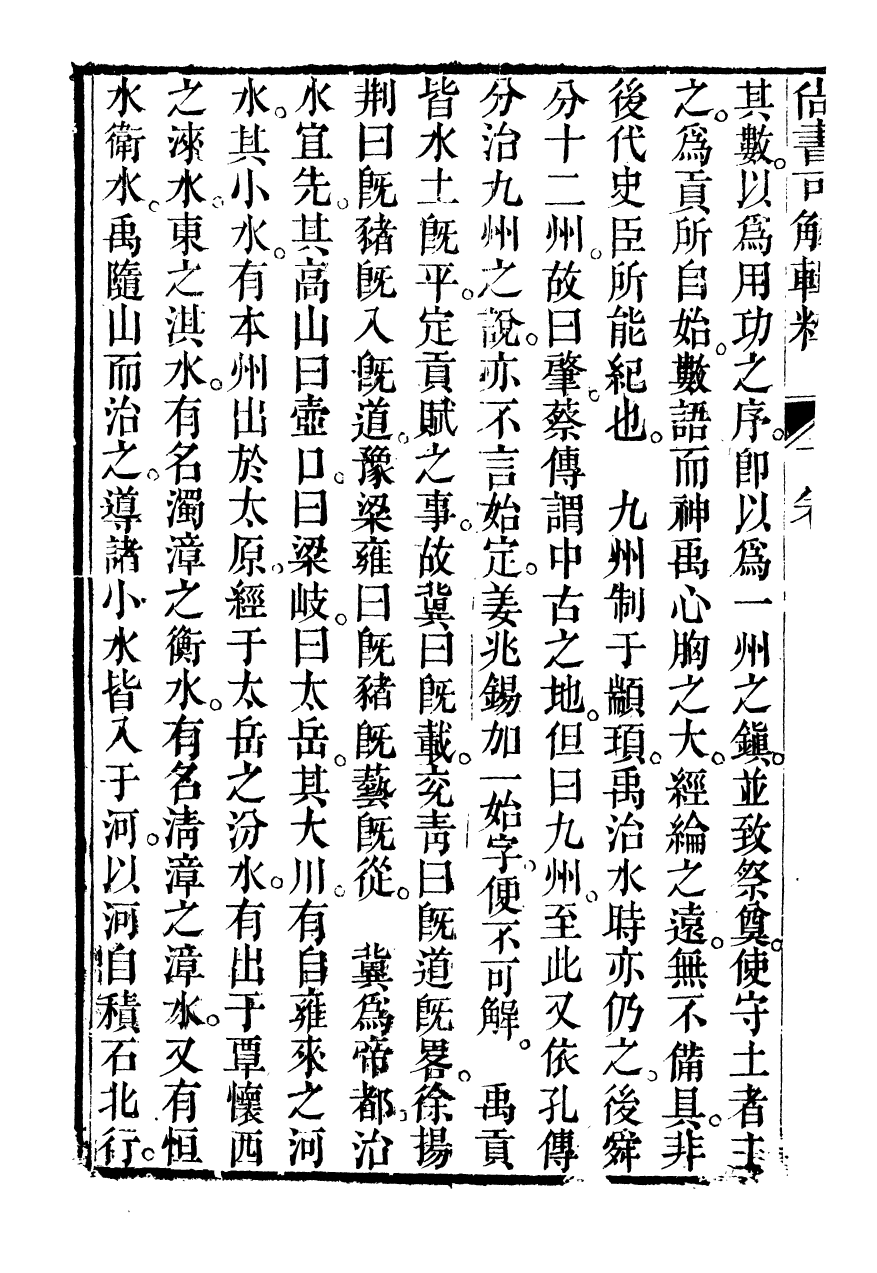 尚書可解輯粹
其數。以爲用功之序。卽以爲一州之鎭。並致祭奠。使守土者主
之。爲貢所自始。數語而神禹心胸之大。經綸之遠。無不備具。非
後代史臣所能紀也。　九州制于顓頊。禹治水時亦仍之。後舜
分十二州。故曰肇。蔡傳謂中古之地。但曰九州。至此又依孔傳
分治九州之說。亦不言始定。姜兆錫加一始字。便不可解。　禹貢
皆水土旣平。定貢賦之事。故冀曰旣載。兗靑曰旣道旣畧。徐揚
荆曰旣豬旣入旣道。豫梁雍曰旣豬旣藝旣從。　冀爲帝都。治
水宜先。其高山曰壺口。曰梁岐。曰太岳。其大川。有自雍來之河
水。其小水。有本州出於太原。經于太岳之汾水。有出于覃懷西
之淶水。東之淇水。有名濁漳之衡水。有名淸漳之漳水。又有恒
水衛水。禹隨山而治之。導諸小水皆入于河。以河自積石北行。